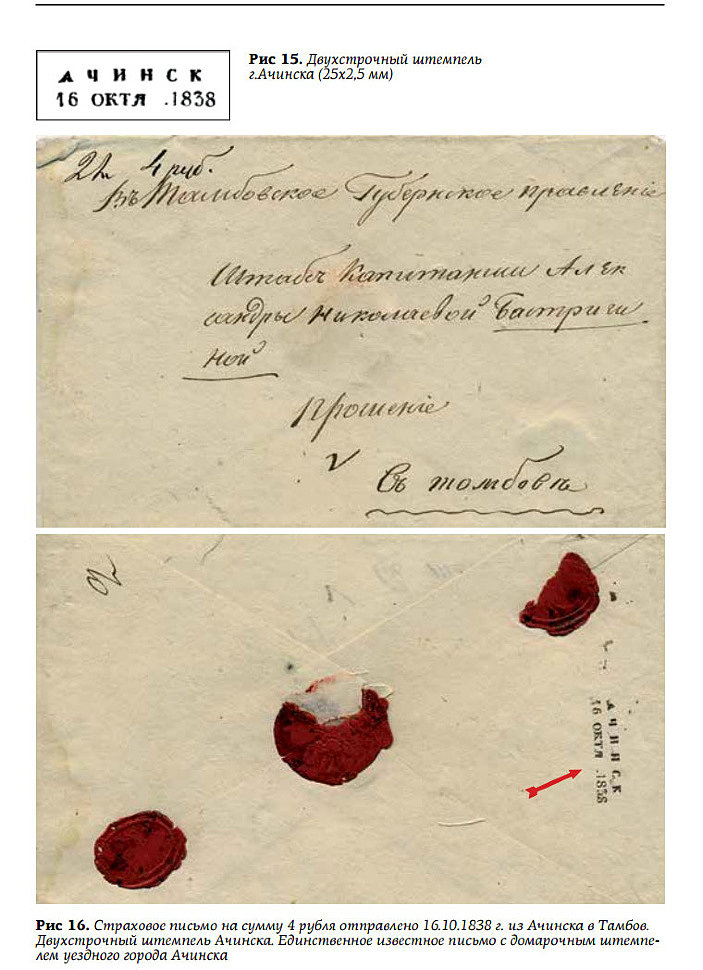 АЧИНСК
16 ОКТЯ .1838
Рис 15. Двухстрочный штемпель
г.Ачинска (25х2,5 мм)
4 руб.
Въ Тамбовское Губернское правленіе
Штабсъ Капитанши Алек
сандры Николаевой Бастриги
ной
Прошеніе
Въ томбовъ
АЧИНСК
16 ОКТЯ .1838
Рис 16. Страховое письмо на сумму 4 рубля отправлено 16.10.1838 г. из Ачинска в Тамбов.
Двухстрочный штемпель Ачинска. Единственное известное письмо с домарочным штемпе-
лем уездного города Ачинска